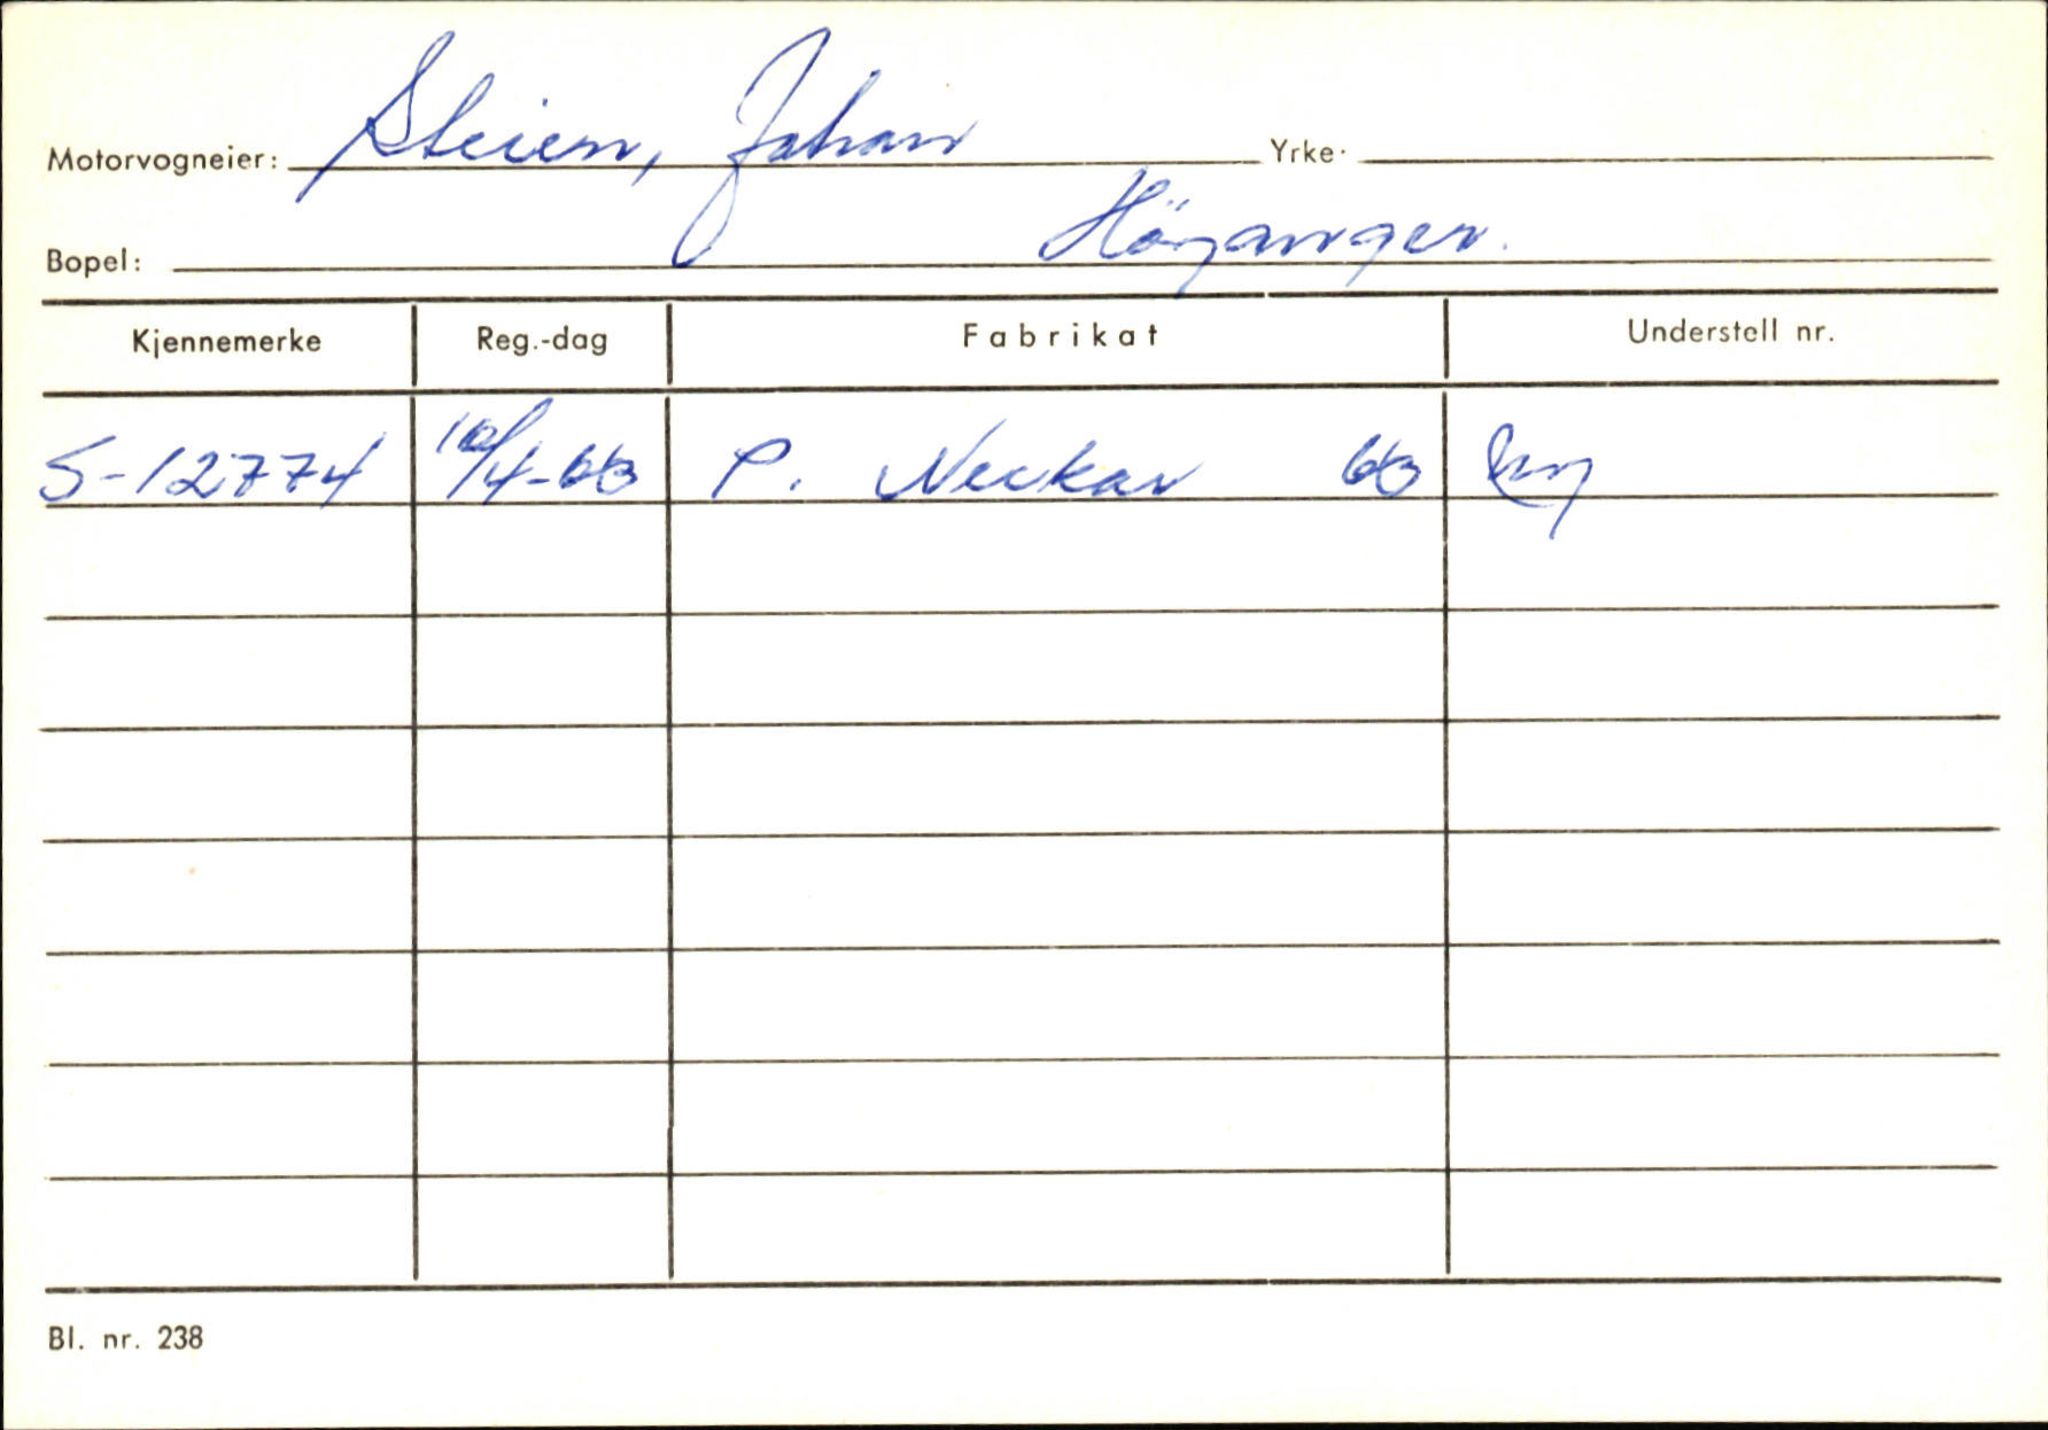 Motorvogneier: Steien, Johan Yrke:
Bopel: Höyanger.
Kjennemerke Reg.-dag Fabrikat Understell nr.
S-12774 P. Neckar
Bl. nr. 238